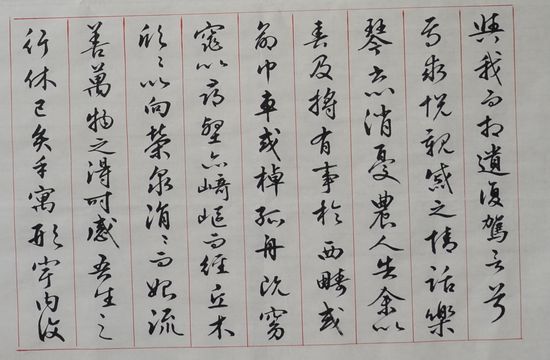 與我而相遺復駕言兮
焉求悅親戚之情話樂
琴書以消憂農人告余以
春及將有事於西疇或
命巾車或棹孤舟既窈
窕以尋壑亦崎嶇而經丘木
欣〻以向榮泉涓〻而始流
善萬物之得時感吾生之
行休已矣乎寓形宇內復